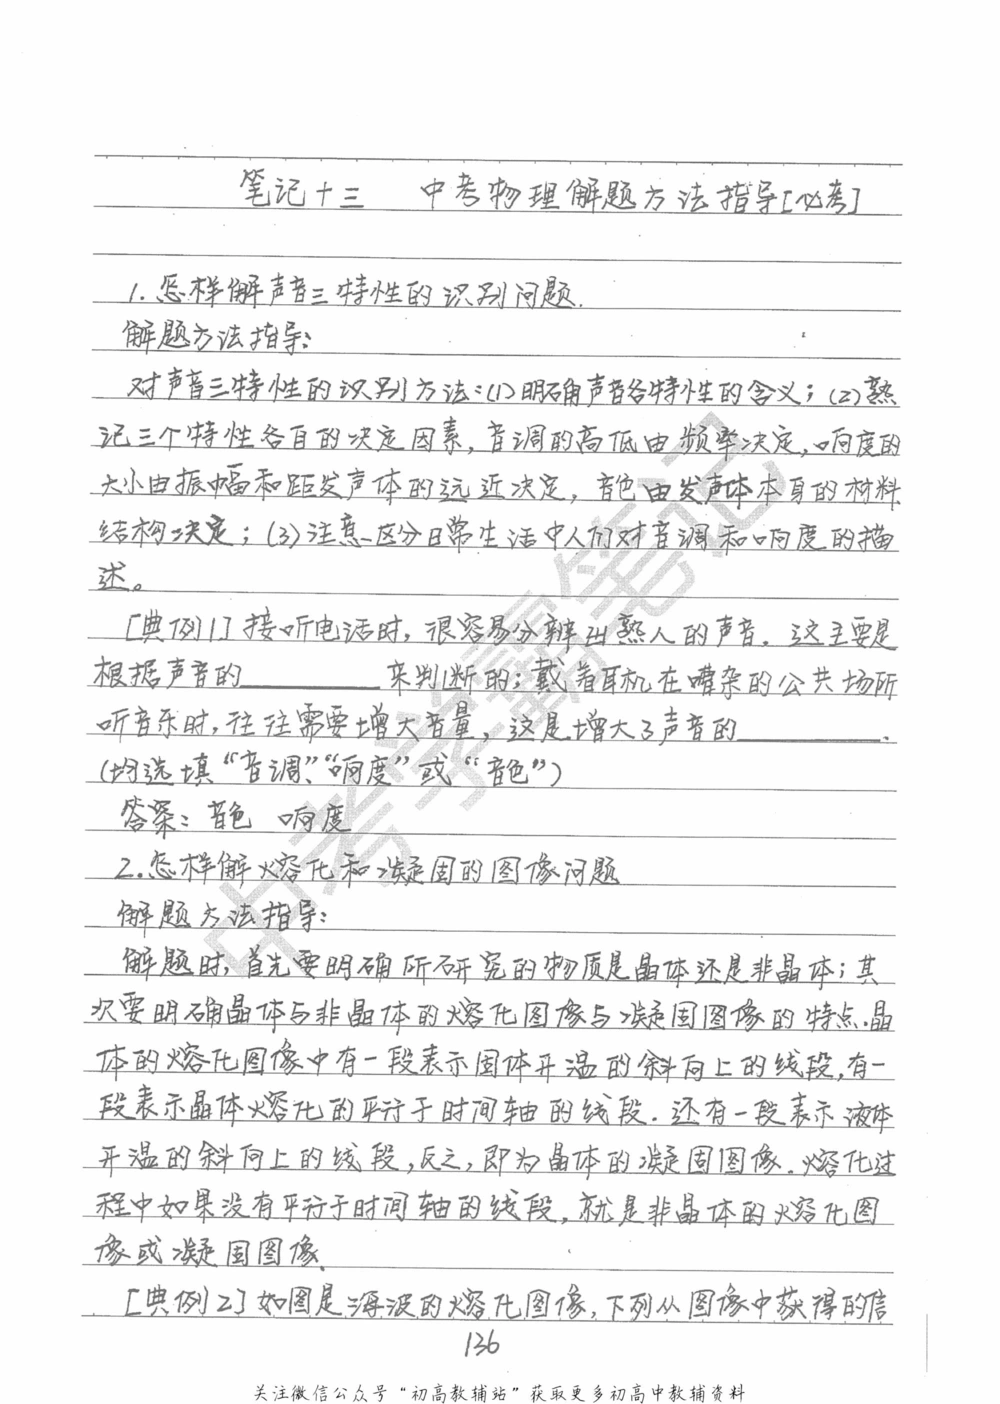 笔记十三 中考物理解题方法指导[必考]
1.怎样解声音三特性的识别问题.
解题方法指导:
对声音三特性的识别方法:(1)明确声音各特性的含义;(2)熟
记三个特性各自的决定因素,音调的高低由频率决定,响度的
大小由振幅和距发声体的远近决定,音色由发声体本身的材料
结构决定;(3)注意区分日常生活中人们对音调和响度的描
述。
[典例1]接听电话时,很容易分辨出熟人的声音.这主要是
根据声音的________来判断的;戴着耳机在嘈杂的公共场所
听音乐时,往往需要增大音量,这是增大了声音的________.
(均选填“音调”“响度”或“音色”)
答案:音色 响度
2.怎样解熔化和凝固的图像问题
解题方法指导:
解题时,首先要明确所研究的物质是晶体还是非晶体;其
次要明确晶体与非晶体的熔化图像与凝固图像的特点.晶
体的熔化图像中有一段表示固体升温的斜向上的线段,有一
段表示晶体熔化的平行于时间轴的线段.还有一段表示液体
升温的斜向上的线段,反之,即为晶体的凝固图像.熔化过
程中如果没有平行于时间轴的线段,就是非晶体的熔化图
像或凝固图像.
[典例2]如图是海波的熔化图像,下列从图像中获得的信
136
关注微信公众号“初高教辅站”获取更多初高中教辅资料
中考学霸笔记